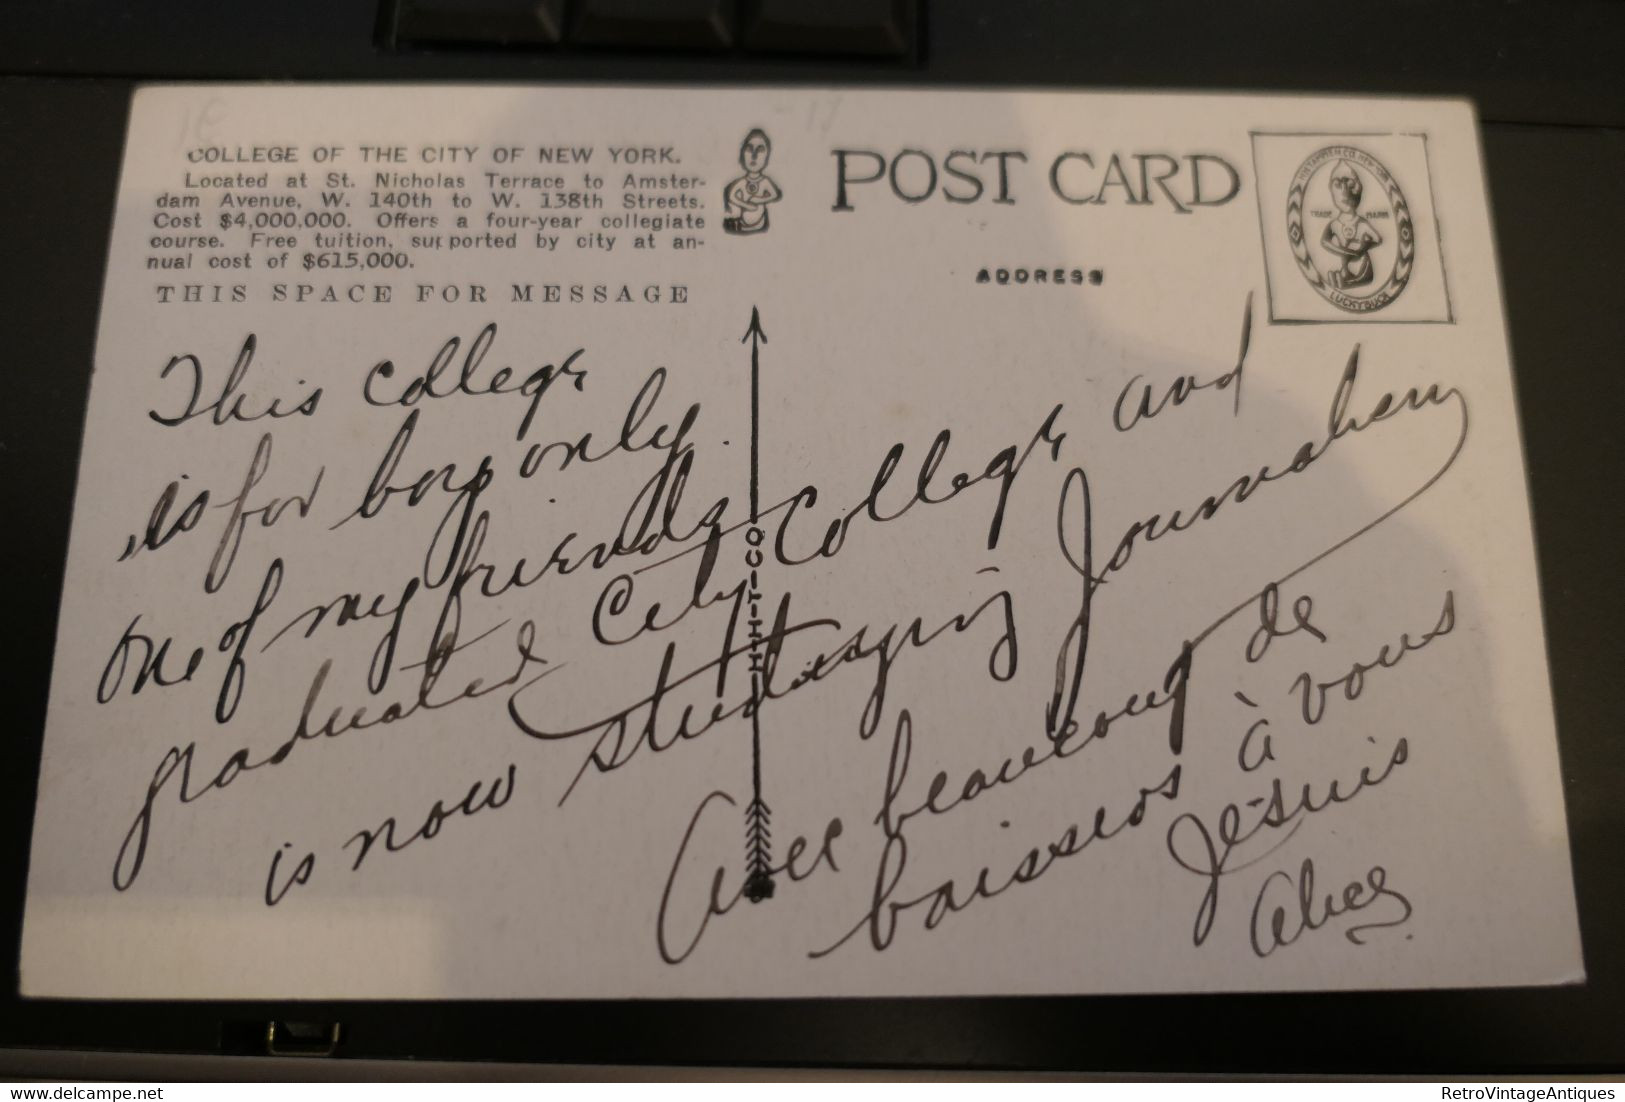 COLLEGE OF THE CITY OF NEW YORK.
Located at St. Nicholas Terrace to Amster-
dam Avenue, W. 140th to W. 138th Streets.
Cost $4,000,000. Offers a four-year collegiate
course. Free tuition, supported by city at an-
nual cost of $615,000.
THIS SPACE FOR MESSAGE
POST CARD
ADDRESS
TRADE MARK
LUCKY BUCK
H-H-T-CO
This college
is for boys only
One of my friends
graduated City College and
is now studying Journalism
Avec beaucoup de
baissers à vous
Je suis
Alice
RetroVintageAntiques